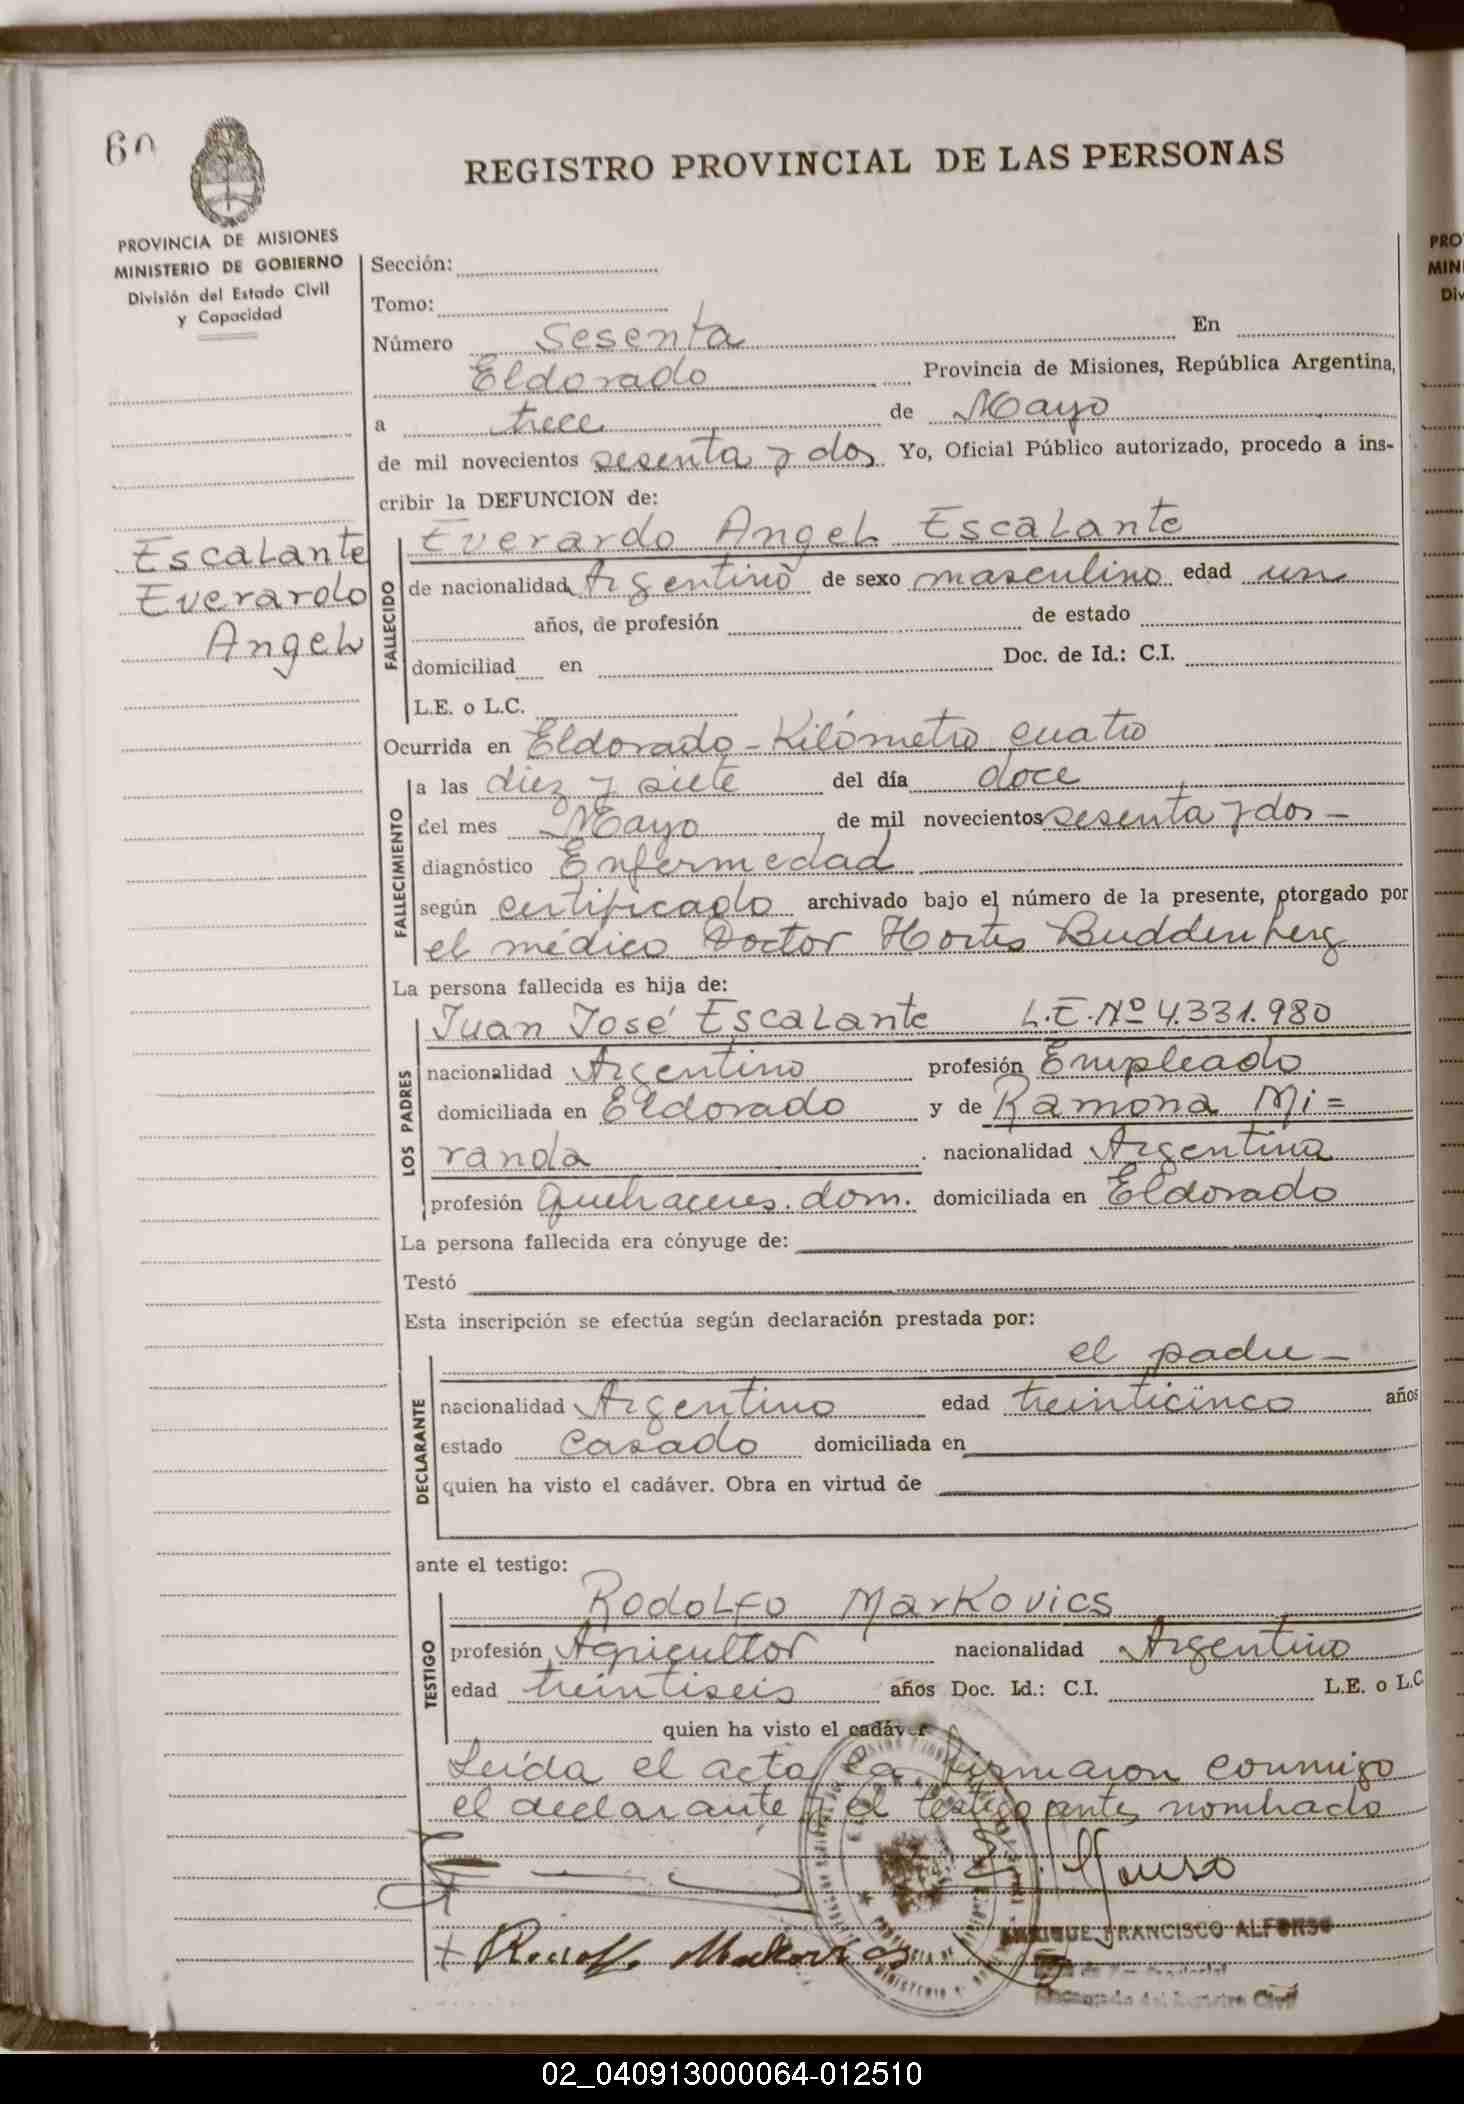 60
REGISTRO PROVINCIAL DE LAS PERSONAS
PROVINCIA DE MISIONES
MINISTERIO DE GOBIERNO
División del Estado Civil
y Capacidad
Sección:
Tomo:
Número sesenta En
Eldorado Provincia de Misiones, República Argentina,
a trece de Mayo
de mil novecientos sesenta y dos Yo, Oficial Público autorizado, procedo a ins-
cribir la DEFUNCION de:
Escalante
Everardo
Angel
FALLECIDO
Everardo Angel Escalante
de nacionalidad Argentino de sexo masculino edad un
años, de profesión de estado
domiciliad en Doc. de Id.: C.I.
L.E. o L.C.
Ocurrida en Eldorado - Kilómetro cuatro
FALLECIMIENTO
a las diez y siete del día doce
del mes Mayo de mil novecientos sesenta y dos -
diagnóstico Enfermedad
según certificado archivado bajo el número de la presente, otorgado por
el médico Doctor Buddenberg
La persona fallecida es hija de:
LOS PADRES
Juan José Escalante L.E. Nº 4.331.980
nacionalidad Argentino profesión Empleado
domiciliada en Eldorado y de Ramona Mi=
randa . nacionalidad Argentina
profesión Quehaceres. dom. domiciliada en Eldorado
La persona fallecida era cónyuge de:
Testó
Esta inscripción se efectúa según declaración prestada por:
DECLARANTE
el padre -
nacionalidad Argentino edad treinticinco años
estado Casado domiciliada en
quien ha visto el cadáver. Obra en virtud de
ante el testigo:
TESTIGO
Rodolfo Markovics
profesión Agricultor nacionalidad Argentino
edad treintiseis años Doc. Id.: C.I. L.E. o L.C
quien ha visto el cadáver
Leída el acta la firmaron conmigo
el declarante y el testigo antes nombrado
ENRIQUE FRANCISCO ALFONSO
Encargado del Registro Civil
PRO
MIN
Div
02_040913000064-012510